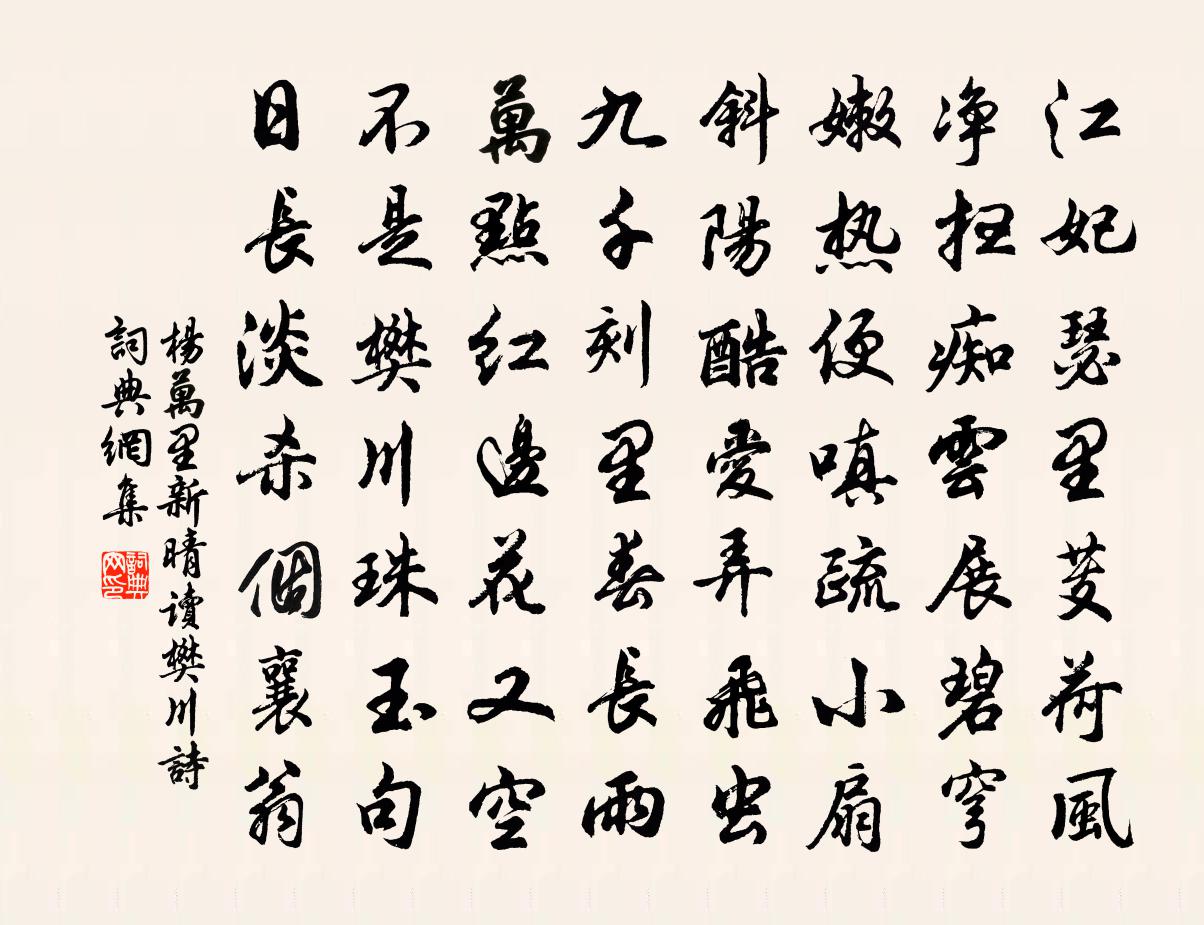 江妃瑟里芰荷風
淨扫痴雲展碧穹
嫩热便嗔疏小扇
斜陽酷愛弄飛虫
九千刻里春長雨
萬點红邊花又空
不是樊川珠玉句
日長淡杀個襄翁
楊萬里新晴讀樊川詩
詞典網集
詞典网印